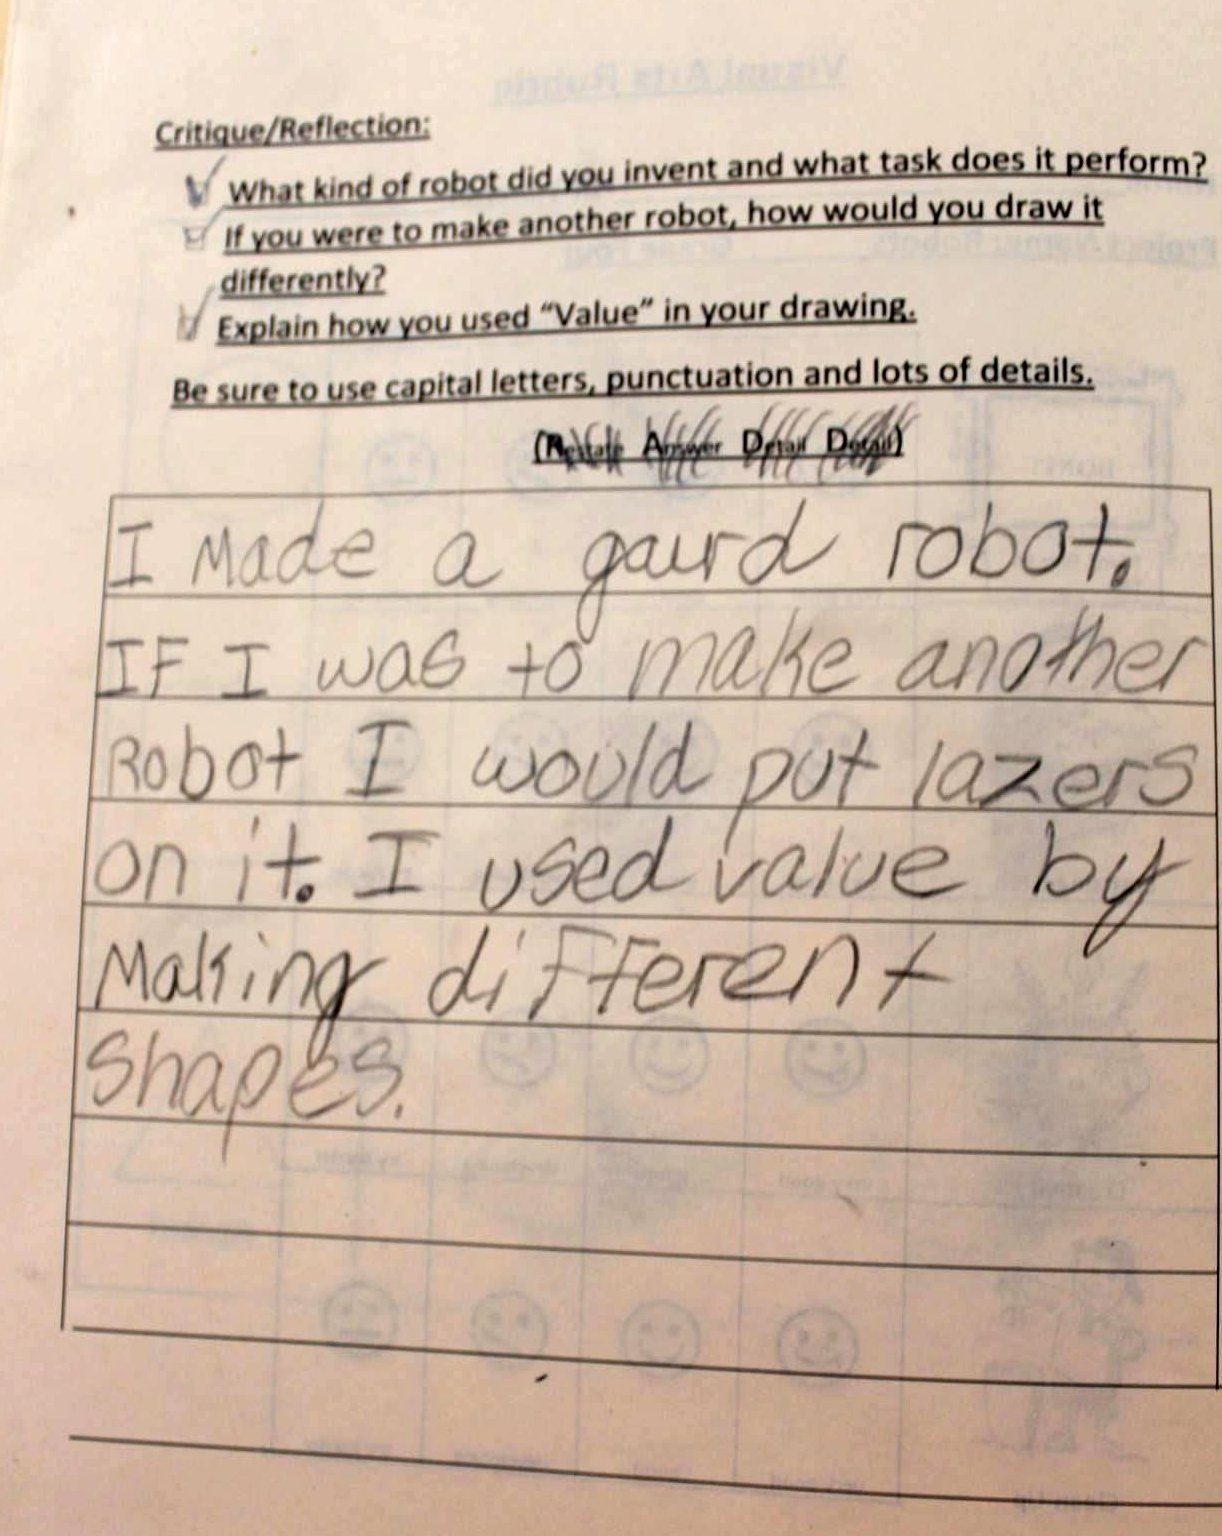 Visual Arts Rubric
Critique/Reflection:
What kind of robot did you invent and what task does it perform?
If you were to make another robot, how would you draw it
differently?
Explain how you used “Value” in your drawing.
Be sure to use capital letters, punctuation and lots of details.
(Restate Answer Detail Detail)
I Made a gaurd robot.
IF I was to make another
Robot I would put lazers
on it. I used value by
Making diFFerent
Shapes.